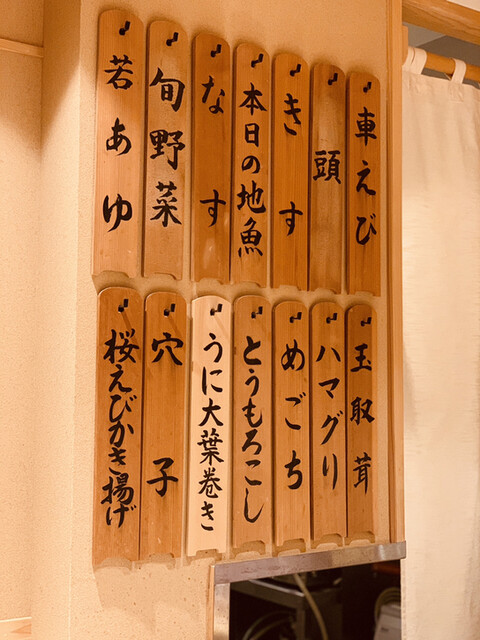 車えび
頭
きす
本日の地魚
なす
旬野菜
若あゆ
玉取茸
ハマグリ
めごち
とうもろこし
うに大葉巻き
穴子
桜えびかき揚げ